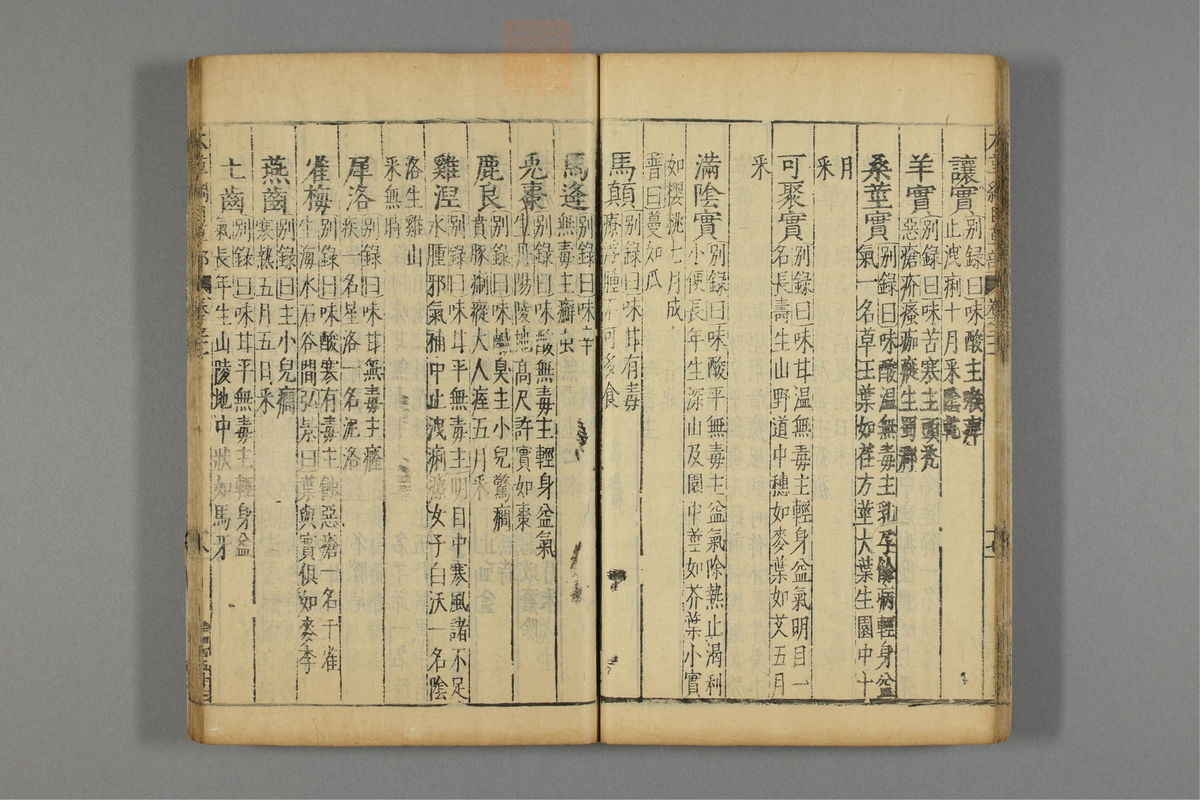 讓實別錄曰味酸主喉痹
止洩痢十月采陰乾
羊實別錄曰味苦寒主頭禿
惡瘡疥瘙痂癬生蜀郡
桑莖實別錄曰味酸温無毒主乳孕餘病輕身益
氣一名草王葉如荏方莖大葉生園中十
月采
可聚實別錄曰味甘温無毒主輕身益氣明目一
名長壽生山野道中穗如麥葉如艾五月
采
滿陰實別錄曰味酸平無毒主益氣除熱止渴利
小便長年生深山及園中莖如芥葉小實
如櫻桃七月成
普曰蔓如瓜
馬顛別錄曰味甘有毒
療浮腫不可多食
馬逢別錄曰味辛
無毒主癬虫
兎棗別錄曰味酸無毒主輕身益氣
生丹陽陵地高尺許實如棗
鹿良別錄曰味鹹臭主小兒驚癇
賁豚瘛瘲大人痓五月采
雞涅別錄曰味甘平無毒主明目中寒風諸不足
水腫邪氣補中止洩痢療女子白沃一名陰
洛生雞山
采無時
犀洛別錄曰味甘無毒主癃
疾一名星洛一名泥洛
雀梅別錄曰味酸寒有毒主蝕惡瘡一名千雀
生海水石谷間弘景曰葉與實俱如麥李
燕齒別錄曰主小兒癇
寒熱五月五日采
土齒別錄曰味甘平無毒主輕身益
氣長年生山陵地中狀如馬牙